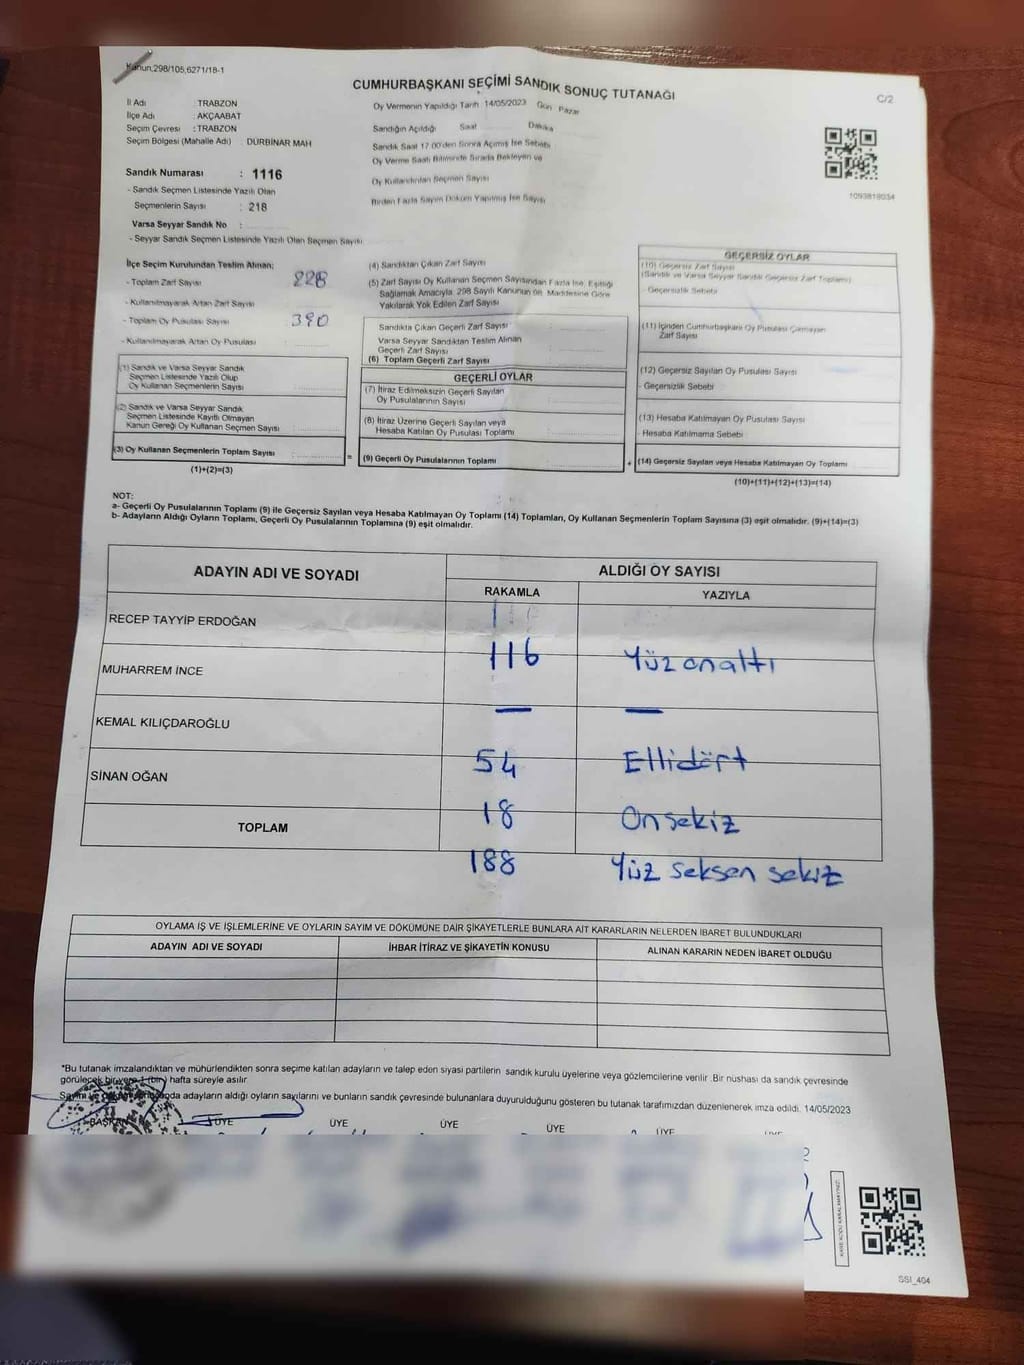 Kanun,298/105,6271/18-1
CUMHURBAŞKANI SEÇİMİ SANDIK SONUÇ TUTANAĞI
C/2
İl Adı : TRABZON
İlçe Adı : AKÇAABAT
Seçim Çevresi : TRABZON
Seçim Bölgesi (Mahalle Adı) : DÜRBİNAR MAH
Sandık Numarası : 1116
- Sandık Seçmen Listesinde Yazılı Olan
Seçmenlerin Sayısı : 218
Varsa Seyyar Sandık No :
- Seyyar Sandık Seçmen Listesinde Yazılı Olan Seçmen Sayısı
Oy Vermenin Yapıldığı Tarih 14/05/2023 Gün Pazar
Sandığın Açıldığı Saat Dakika
Sandık Saat 17.00'den Sonra Açılmış İse Sebebi
Oy Verme Saati Bitiminde Sırada Bekleyen ve
Oy Kullandırılan Seçmen Sayısı
Birden Fazla Sayım Döküm Yapılmış İse Sayısı
1093818034
İlçe Seçim Kurulundan Teslim Alınan;
- Toplam Zarf Sayısı 228
- Kullanılmayarak Artan Zarf Sayısı
- Toplam Oy Pusulası Sayısı 390
- Kullanılmayarak Artan Oy Pusulası
(1) Sandık ve Varsa Seyyar Sandık
Seçmen Listesinde Yazılı Olup
Oy Kullanan Seçmenlerin Sayısı
(2) Sandık ve Varsa Seyyar Sandık
Seçmen Listesinde Kayıtlı Olmayan
Kanun Gereği Oy Kullanan Seçmen Sayısı
(3) Oy Kullanan Seçmenlerin Toplam Sayısı
(1)+(2)=(3)
(4) Sandıktan Çıkan Zarf Sayısı
(5) Zarf Sayısı Oy Kullanan Seçmen Sayısından Fazla İse, Eşitliği
Sağlamak Amacıyla, 298 Sayılı Kanunun 98. Maddesine Göre
Yakılarak Yok Edilen Zarf Sayısı
Sandıkta Çıkan Geçerli Zarf Sayısı
Varsa Seyyar Sandıktan Teslim Alınan
Geçerli Zarf Sayısı
(6) Toplam Geçerli Zarf Sayısı
GEÇERLİ OYLAR
(7) İtiraz Edilmeksizin Geçerli Sayılan
Oy Pusulalarının Sayısı
(8) İtiraz Üzerine Geçerli Sayılan veya
Hesaba Katılan Oy Pusulası Toplamı
= (9) Geçerli Oy Pusulalarının Toplamı
GEÇERSİZ OYLAR
(10) Geçersiz Zarf Sayısı
(Sandık ve Varsa Seyyar Sandık Geçersiz Zarf Toplamı)
- Geçersizlik Sebebi
(11) İçinden Cumhurbaşkanı Oy Pusulası Çıkmayan
Zarf Sayısı
(12) Geçersiz Sayılan Oy Pusulası Sayısı
- Geçersizlik Sebebi
(13) Hesaba Katılmayan Oy Pusulası Sayısı
- Hesaba Katılmama Sebebi
+ (14) Geçersiz Sayılan veya Hesaba Katılmayan Oy Toplamı
(10)+(11)+(12)+(13)=(14)
NOT:
a- Geçerli Oy Pusulalarının Toplamı (9) ile Geçersiz Sayılan veya Hesaba Katılmayan Oy Toplamı (14) Toplamları, Oy Kullanan Seçmenlerin Toplam Sayısına (3) eşit olmalıdır. (9)+(14)=(3)
b- Adayların Aldığı Oyların Toplamı, Geçerli Oy Pusulalarının Toplamına (9) eşit olmalıdır.
ADAYIN ADI VE SOYADI ALDIĞI OY SAYISI
RAKAMLA YAZIYLA
RECEP TAYYİP ERDOĞAN
116 Yüz onaltı
MUHARREM İNCE
— —
KEMAL KILIÇDAROĞLU
54 Ellidört
SİNAN OĞAN
18 Onsekiz
TOPLAM
188 Yüz seksen sekiz
OYLAMA İŞ VE İŞLEMLERİNE VE OYLARIN SAYIM VE DÖKÜMÜNE DAİR ŞİKAYETLERLE BUNLARA AİT KARARLARIN NELERDEN İBARET BULUNDUKLARI
ADAYIN ADI VE SOYADI İHBAR İTİRAZ VE ŞİKAYETİN KONUSU ALINAN KARARIN NEDEN İBARET OLDUĞU
*Bu tutanak imzalandıktan ve mühürlendikten sonra seçime katılan adayların ve talep eden siyasi partilerin sandık kurulu üyelerine veya gözlemcilerine verilir. Bir nüshası da sandık çevresinde
görülecek bir yere 1 (bir) hafta süreyle asılır.
Sayım ve adayların aldığı oyların sayılarını ve bunların sandık çevresinde bulunanlara duyurulduğunu gösteren bu tutanak tarafımızdan düzenlenerek imza edildi. 14/05/2023
BAŞKAN ÜYE ÜYE ÜYE ÜYE ÜYE
SSI_404